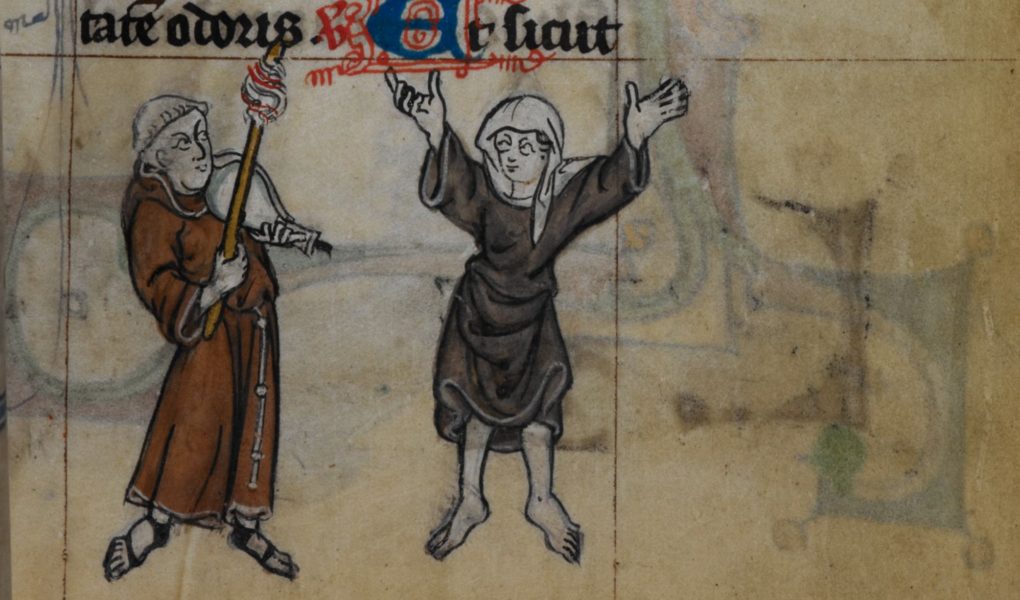 tatē odoris. ℟ Et sicut